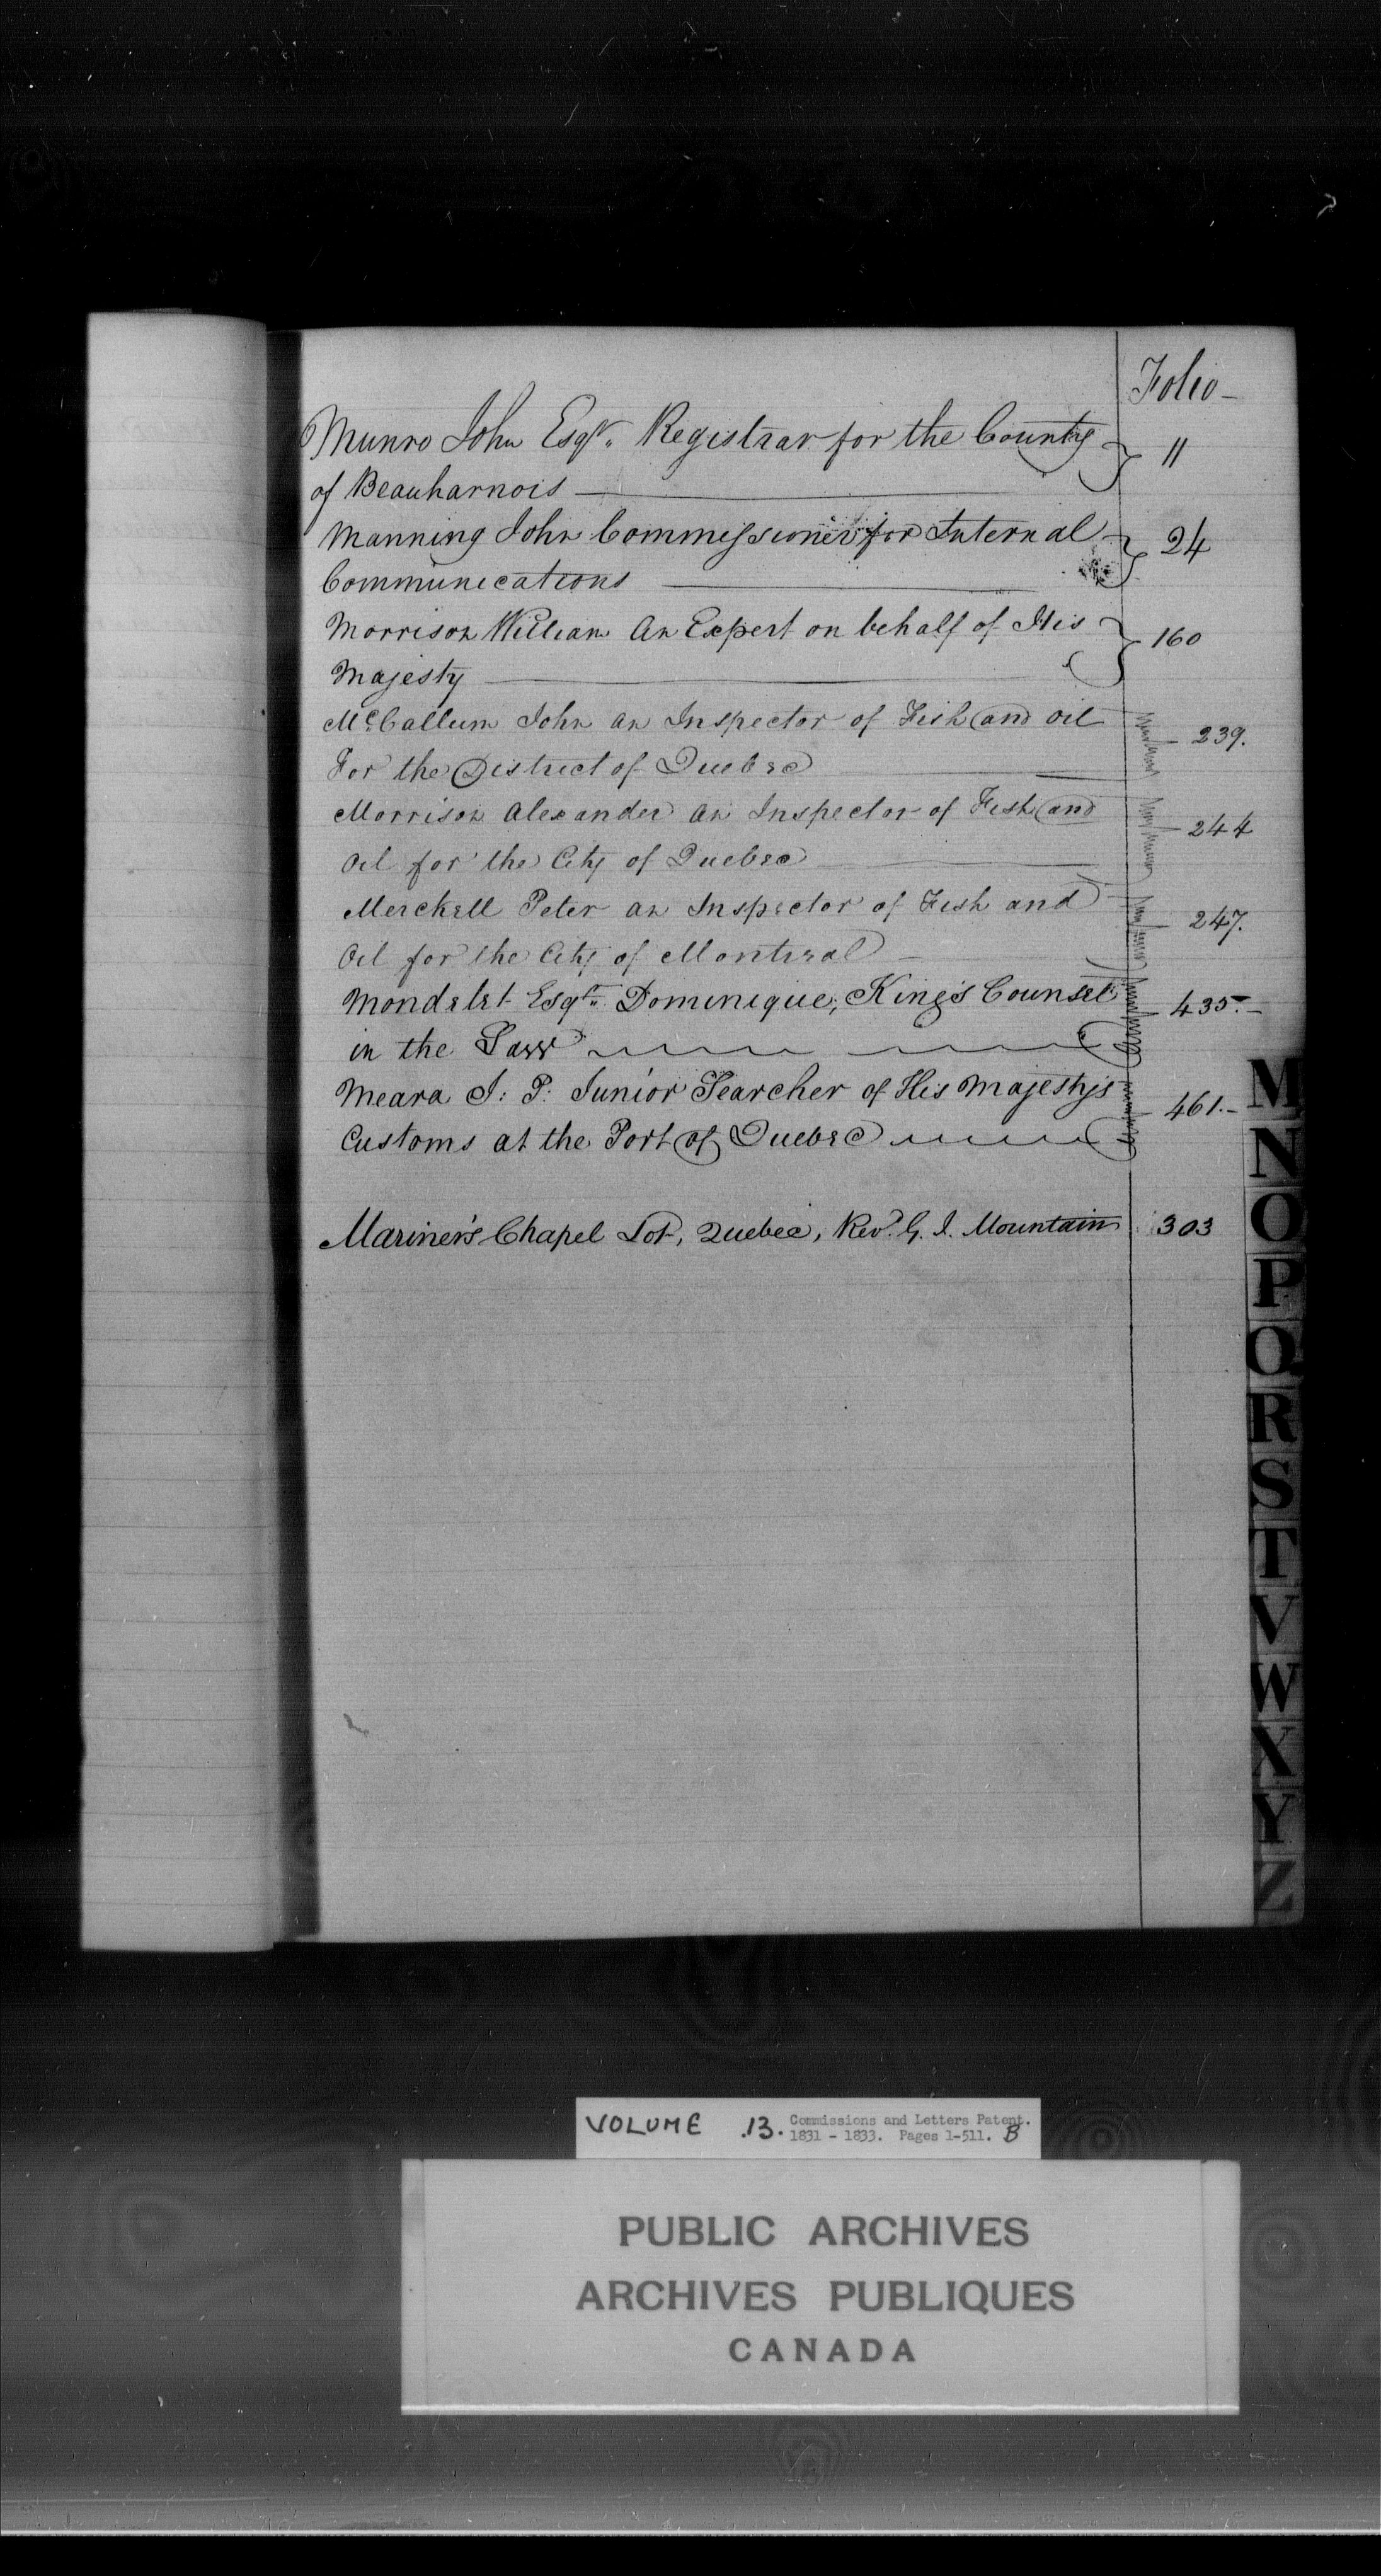 Folio
Munro John Esqr. Registrar for the County 11
of Beauharnois
Manning John Commissioner for Internal 24
Communications
Morrison William An Expert on behalf of His 160
Majesty
McCallum John an Inspector of Fish and oil 239.
For the District of Quebec
Morrison Alexander an Inspector of Fish and 244
Oil for the City of Quebec
Merckell Peter an Inspector of Fish and 247.
Oil for the City of Montreal
Mondelet Esqr. Dominique, King's Counsel 435.
in the Law
Meara J: P: Junior Searcher of His Majesty's 461.
Customs at the Port of Quebec
Mariner's Chapel Lot, Quebec, Revd. G. J. Mountain 303
M
N
O
P
Q
R
S
T
V
W
X
Y
Z
VOLUME .13. Commissions and Letters Patent.
1831 - 1833. Pages 1-511. B
PUBLIC ARCHIVES
ARCHIVES PUBLIQUES
CANADA